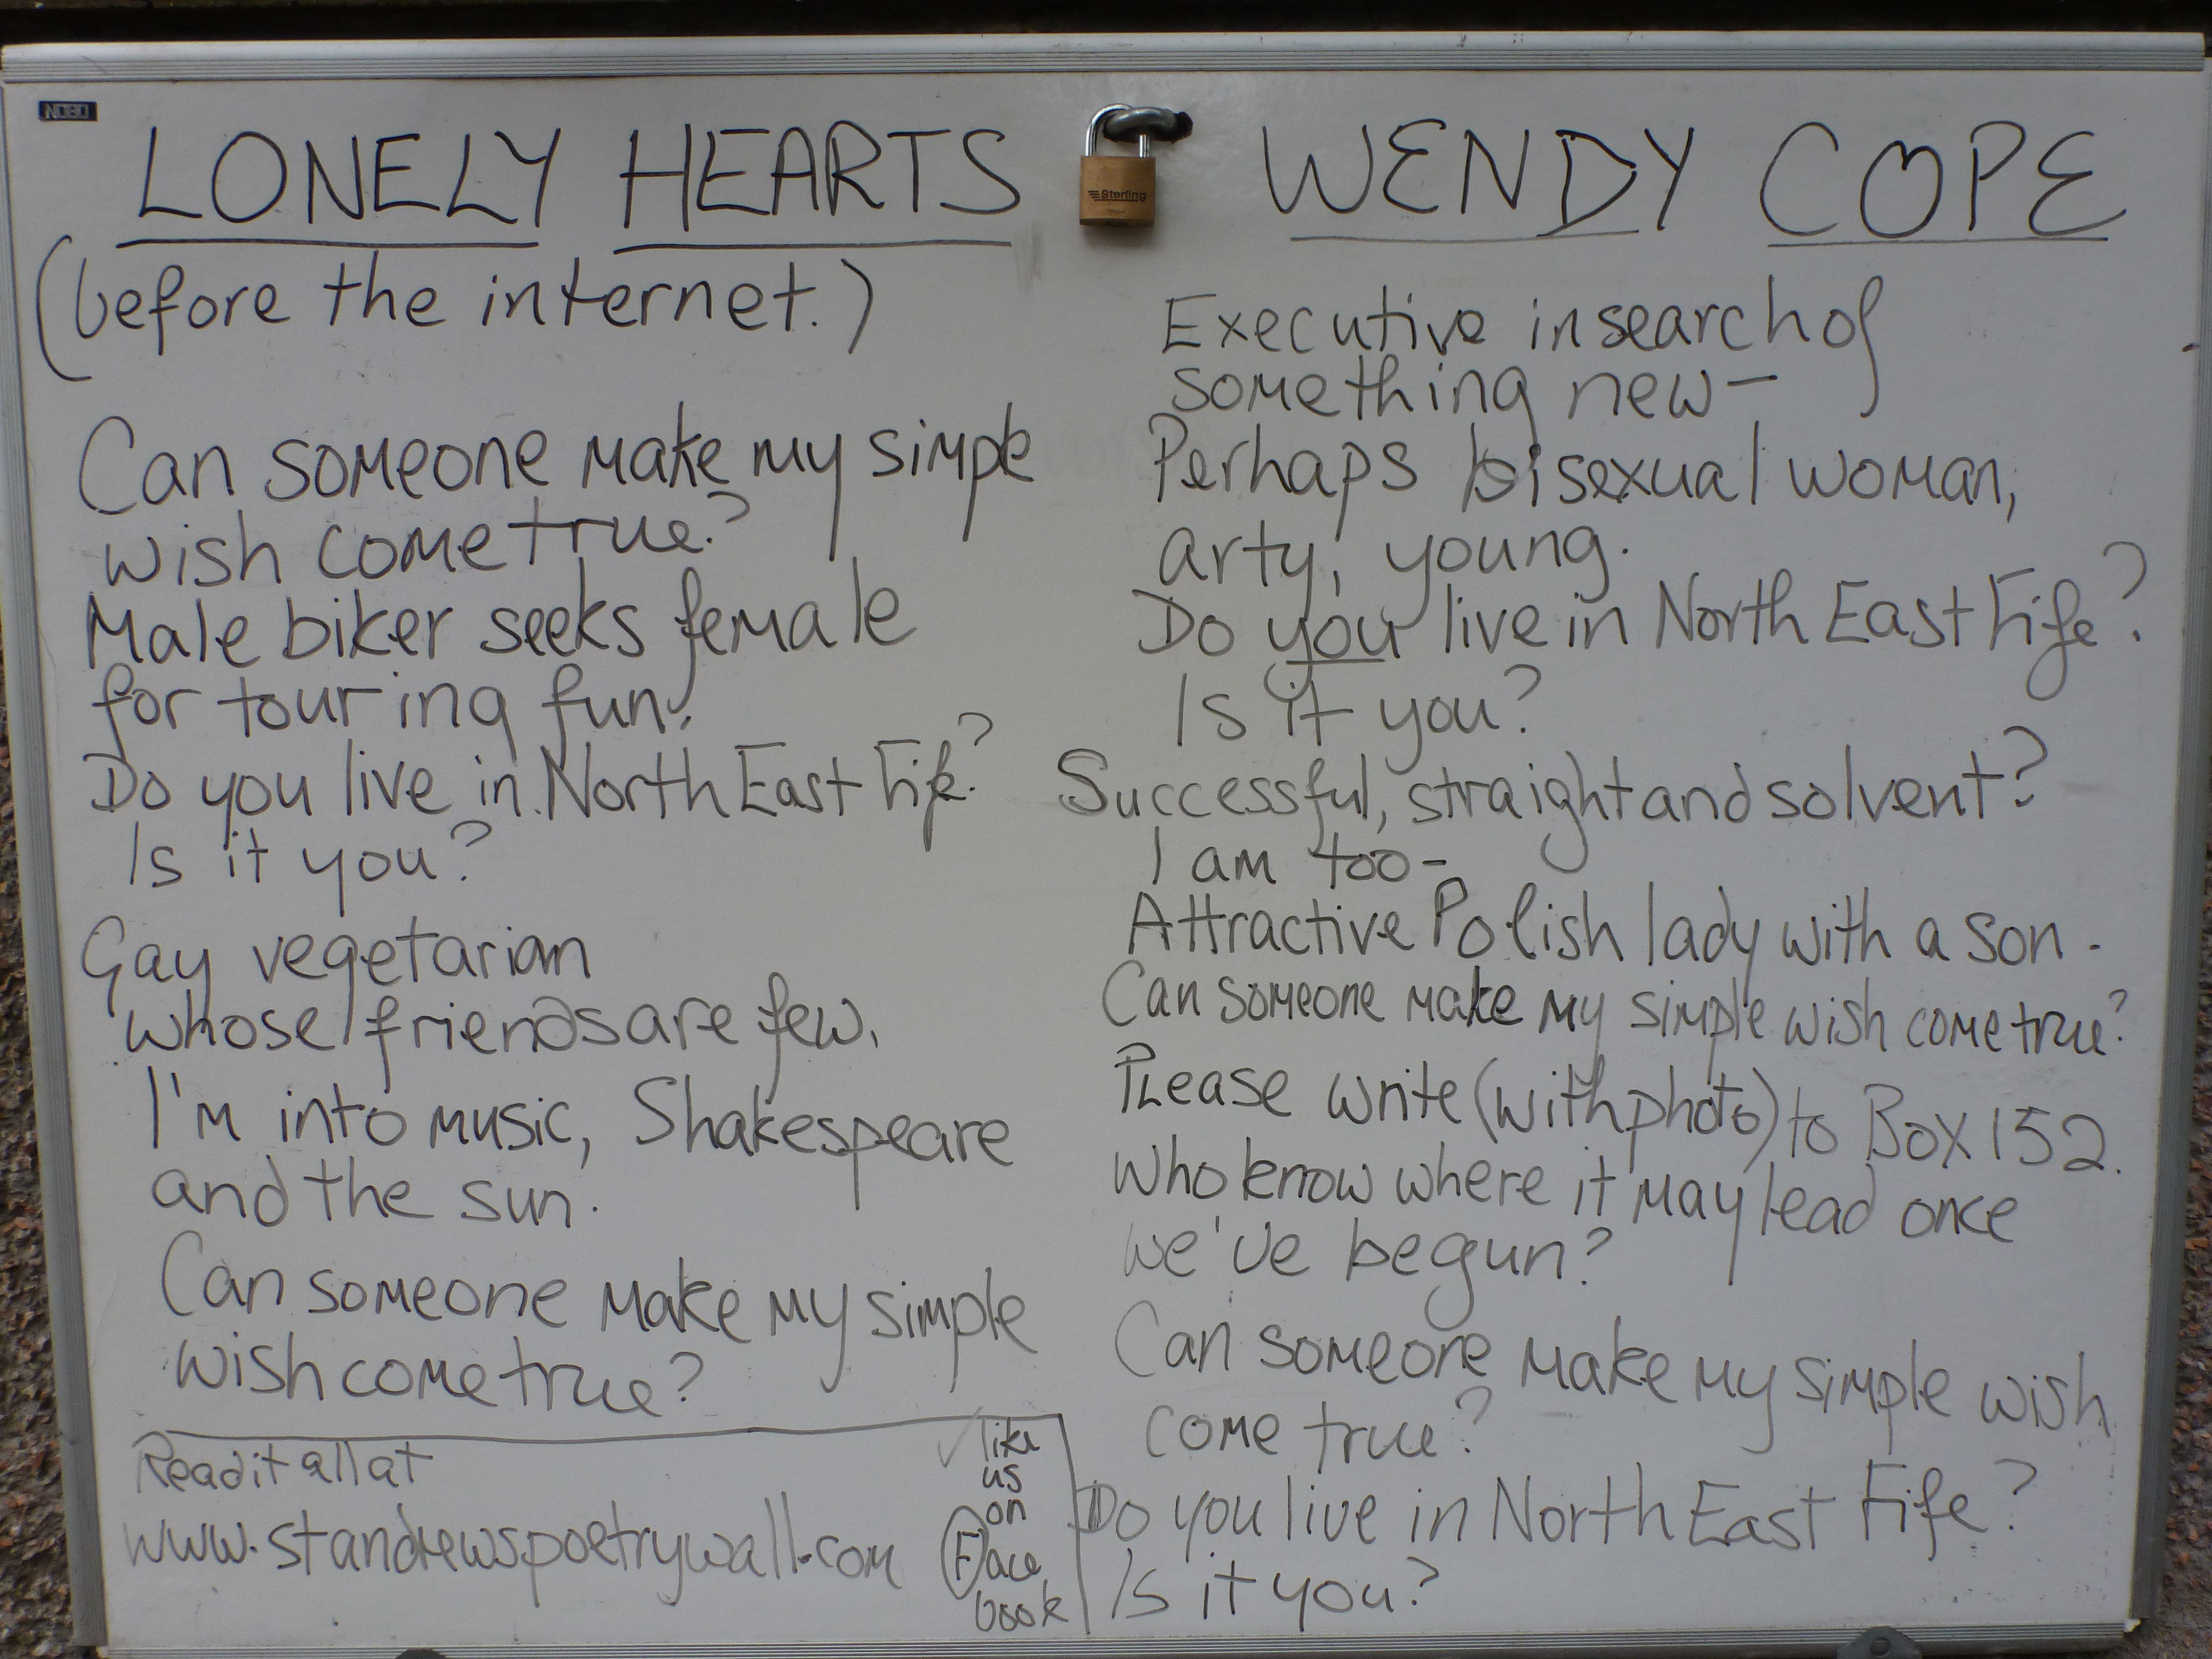 NOBO
LONELY HEARTS
Sterling
WENDY COPE
(before the internet.)
Can someone make my simple
wish come true?
Male biker seeks female
for touring fun.
Do you live in North East Fife?
Is it you?
Gay vegetarian
whose friends are few,
I'm into music, Shakespeare
and the sun.
Can someone make my simple
wish come true?
Read it all at
www.standrewspoetrywall.com
like
us
on
Face
book
Executive in search of
something new—
Perhaps bisexual woman,
arty, young.
Do you live in North East Fife?
Is it you?
Successful, straight and solvent?
I am too-
Attractive Polish lady with a son.
Can someone make my simple wish come true?
Please write (with photo) to Box 152.
Who know where it may lead once
we've begun?
Can someone make my simple wish
come true?
Do you live in North East Fife?
Is it you?